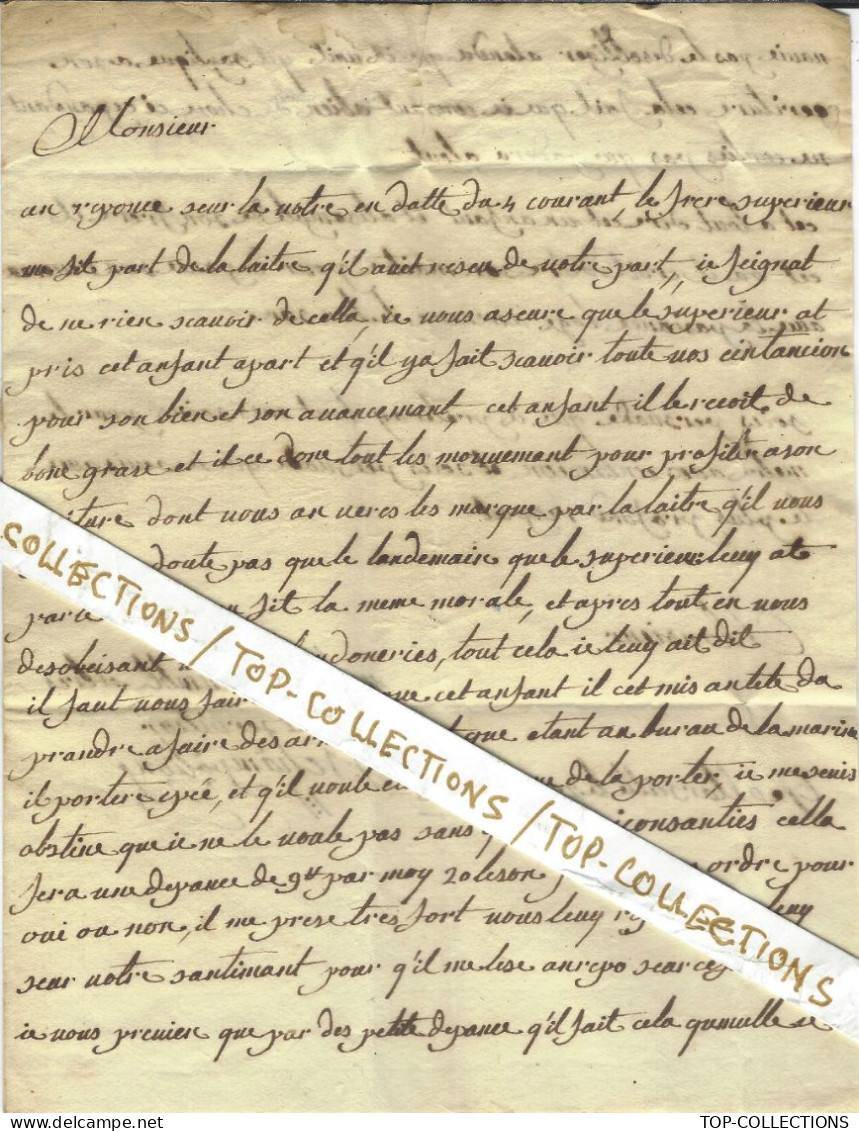 Monsieur
an reponce seur la votre en datte du 4 courant le frere superieur
me fit part de la laitre q'il avit reseu de votre part, ie feignat
de ne rien scavoir de cella, ie vous aseure que le superieur at
pris cet anfant apart et q'il ya fait scavoir toute vos eintancion
pour son bien et son avancemant, cet anfant il le recoit de
bone grase et il ce done tout les mouvemant pour profiter a son
iture dont vous an veres les marque par la laitre q'il vous
doute pas que le landemain que le superieur luy at
parle fit la meme morale, et apres tout en vous
desobeisant doneries, tout cela ie luy ait dit
il faut vous fair que cet anfant il cet mis an tete da
prandre a faire des ar que etant au burau de la marine
il porter epée, et q'il voule de la porter, ie me suis
obstine que ie ne le voule pas sans consanties cella
fera une depance de 9# par moy 20 leson ordre pour
oui ou non, il me prese tres fort vous luy luy
seur votre santimant pour q'il me lese an repo seur ce
ie vous previen que par des petite depance q'il fait cela qumulle ie
COLLECTIONS / TOP-COLLECTIONS / TOP-COLLECTIONS
TOP-COLLECTIONS